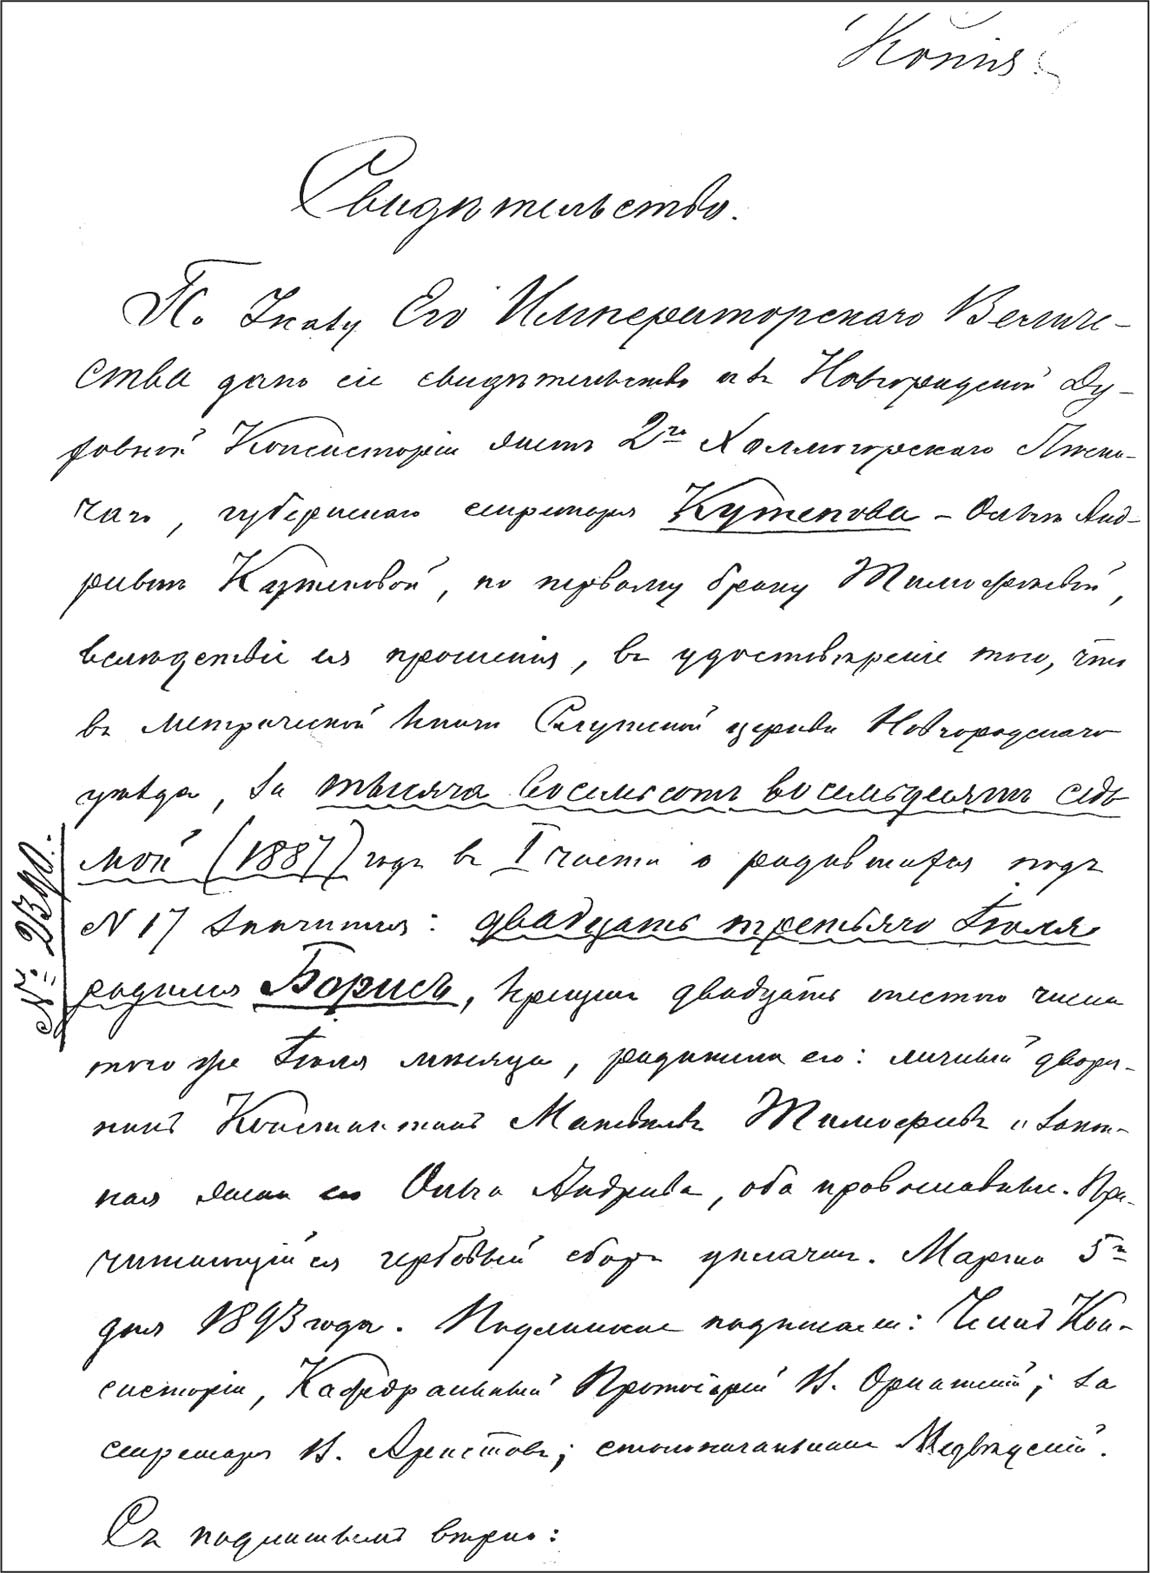 Копія.
Свидѣтельство.
По Указу Его Императорскаго Величе-
ства дано сіе свидѣтельство изъ Новгородской Ду-
ховной Консисторіи женѣ 2го Холмогорскаго Лѣсни-
чаго, губернскаго секретаря Кутепова - Ольгѣ Анд-
реевнѣ Кутеповой, по первому браку Тимофеевой,
вслѣдствіе ея прошенія, въ удостовѣреніе того, что
въ метрической книгѣ церкви Новгородскаго
уѣзда, за тысяча восемьсотъ восемьдесятъ седь
мой (1887) годъ въ I части о родившихся подъ
N 17 значится: двадцать третьяго Іюля
родился Борисъ, крещенъ двадцать шестого числа
того же Іюля мѣсяца, родители его: личный дворя-
нинъ Константинъ Матвѣевъ Тимофеевъ и закон-
ная жена его Ольга Андреева, оба православные. При-
читающійся гербовый сборъ уплаченъ. Марта 5го
дня 1893 года. Подлинное подписали: Членъ Кон-
систоріи, Кафедральный Протоіерей В. Орнатскій; за
секретаря В. Аристовъ; столоначальникъ Медвѣдскій.
Съ подлиннымъ вѣрно:
№ 2390.